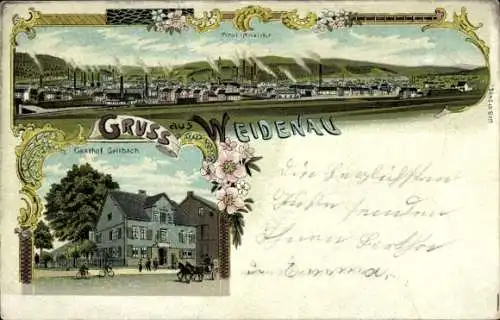 Total-Ansicht
GRUSS aus WEIDENAU
Gasthof Gelsbach
Die herzlichsten
Grüße senden
Ihnen Berthe
u. Emma.